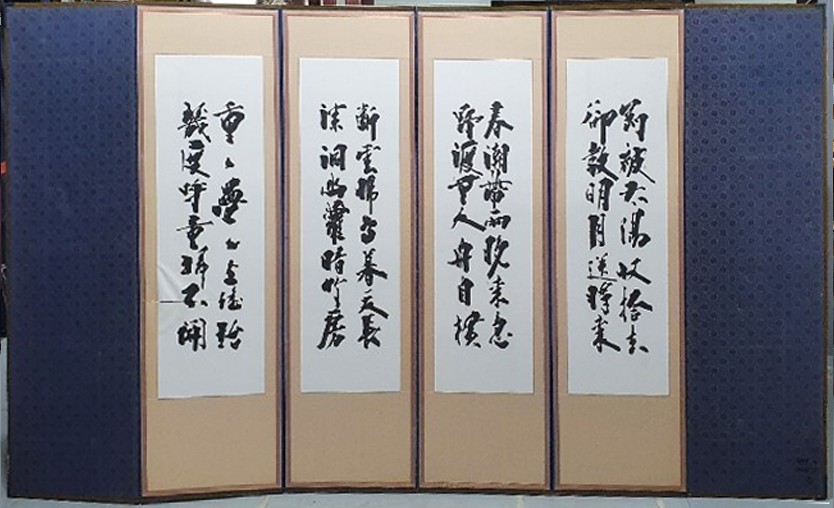 剛被太陽收拾去
卻敎明月送將來
春潮帶雨晚來急
野渡無人舟自橫
斷雲歸鳥暮天長
深洞幽蘿暗竹房
重〻疊〻上瑤臺
幾度呼童掃不開